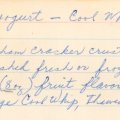 yogurt - Cool W
ham cracker crust
shed fresh or froz
(8 oz) fruit flavor
ge Cool Whip, thawe